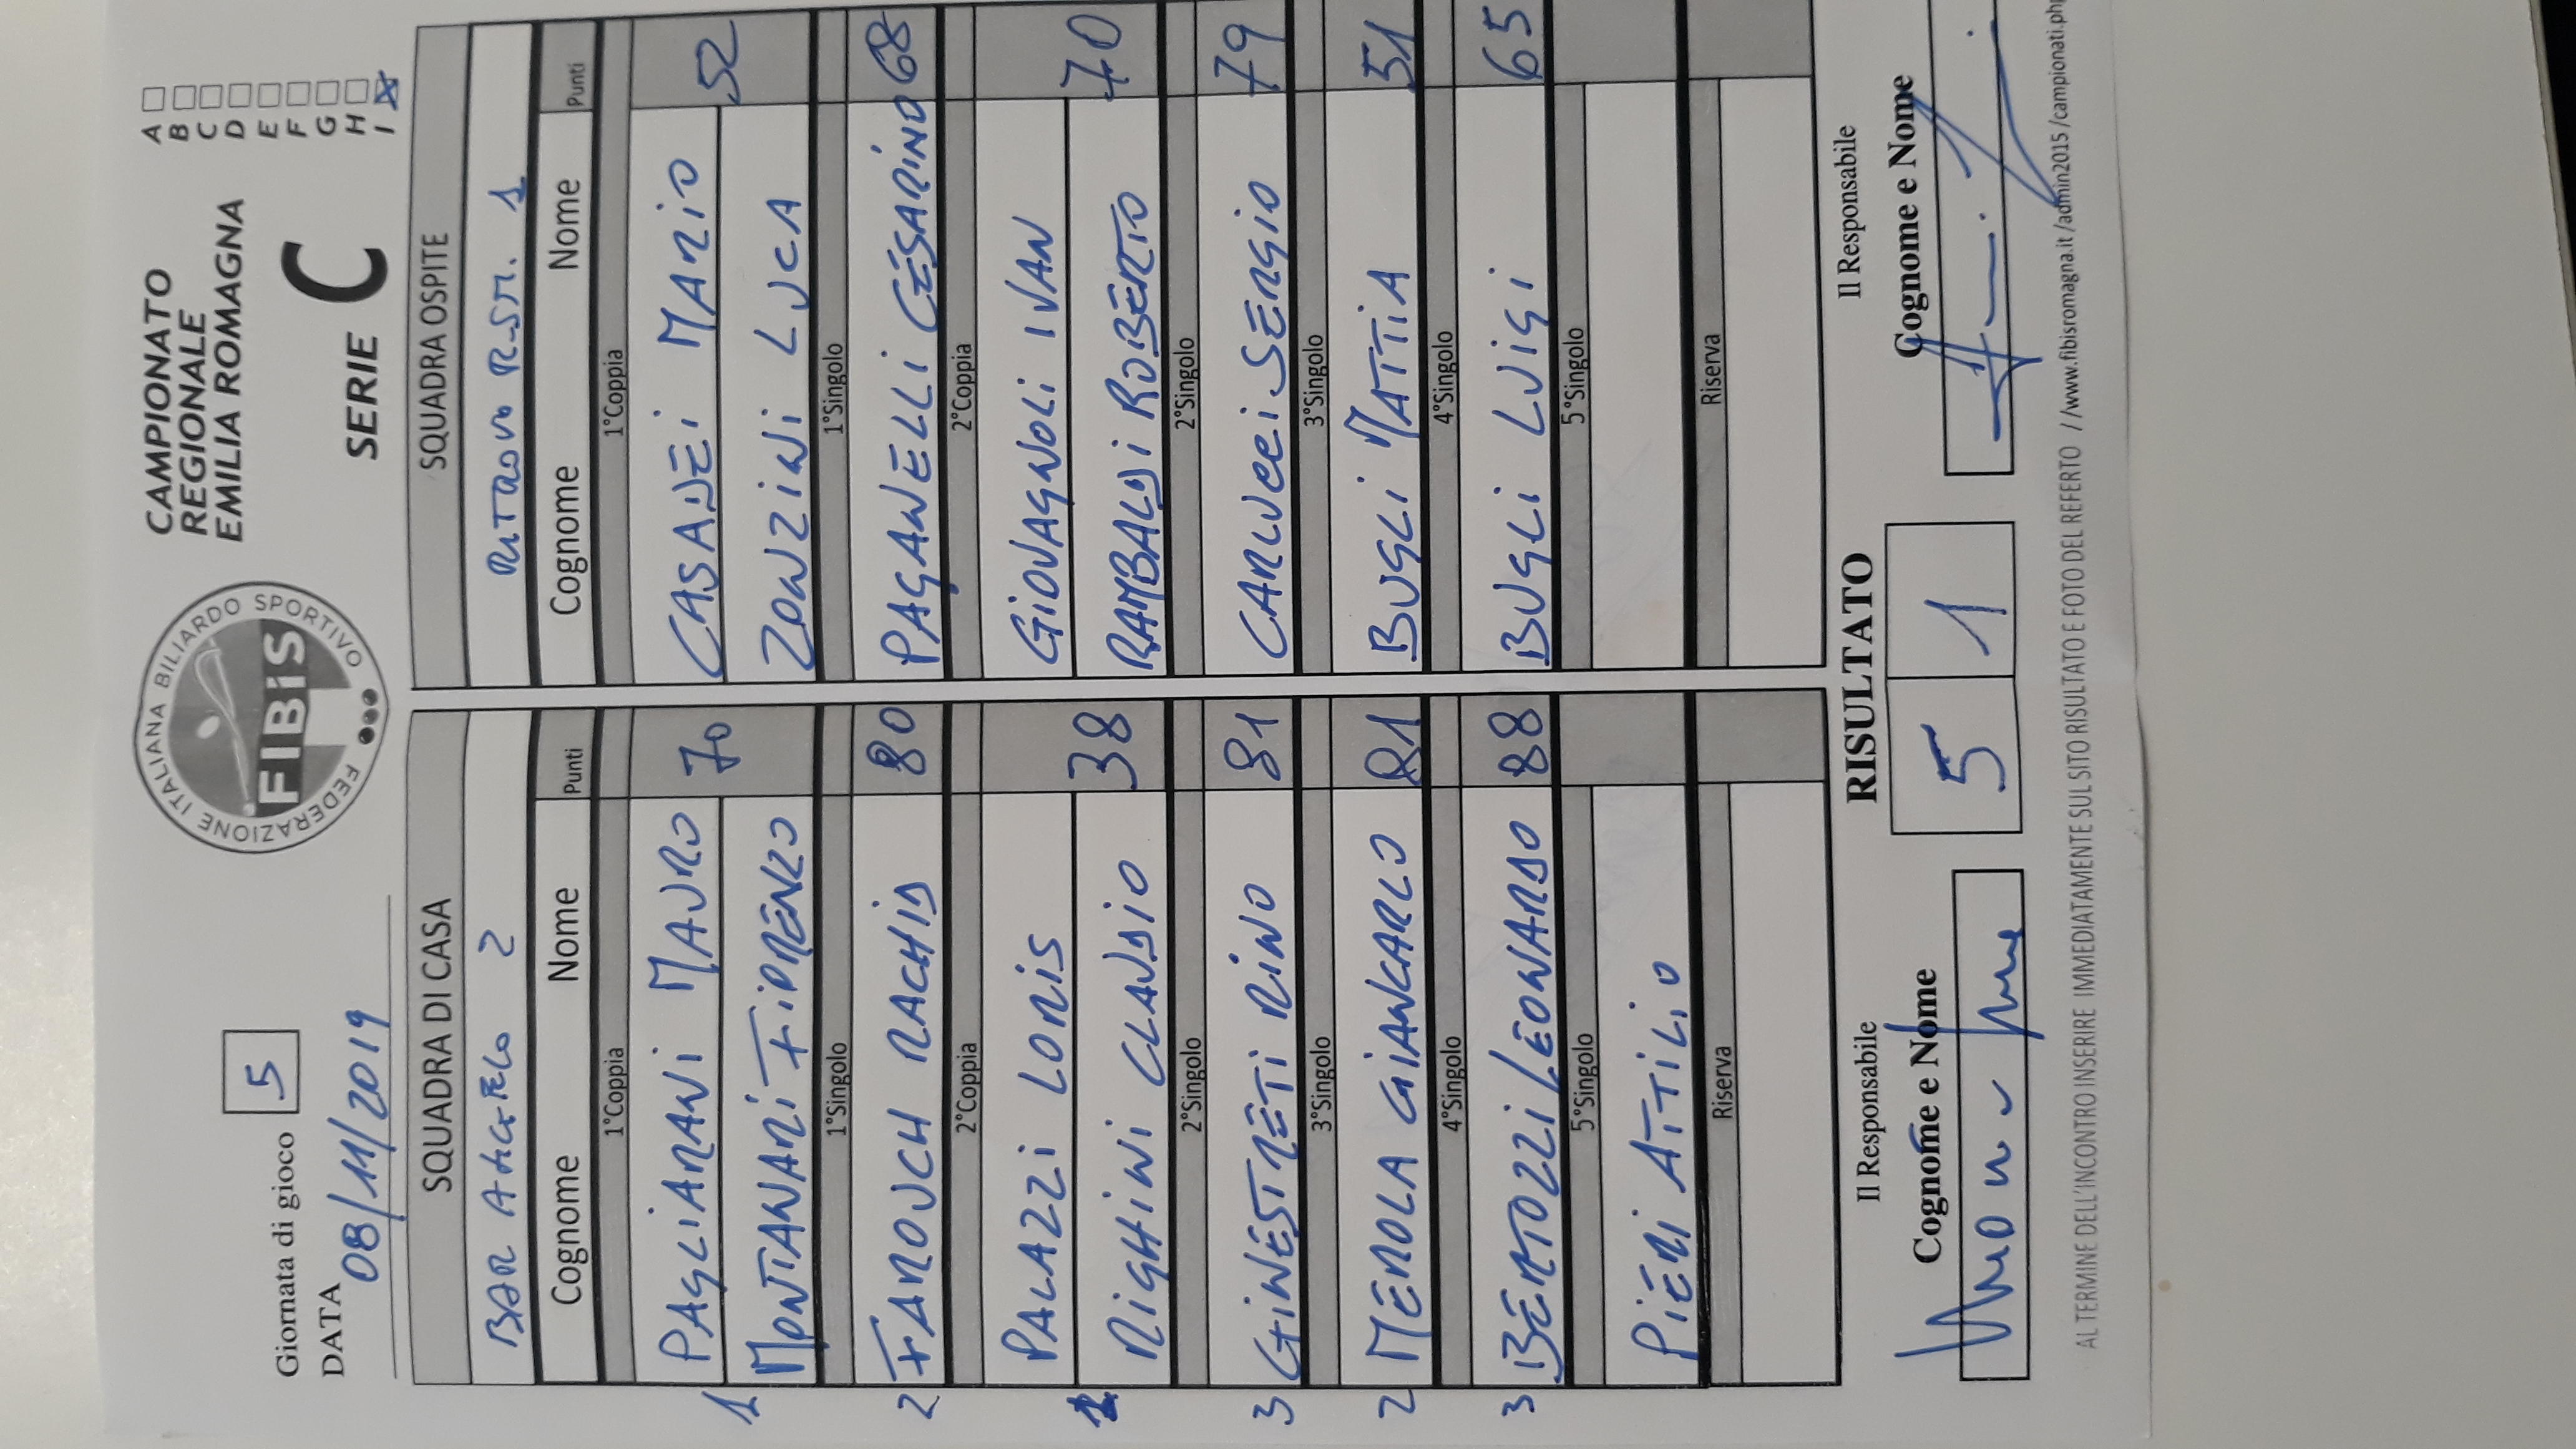 Giornata di gioco 5
DATA 08/11/2019
FEDERAZIONE ITALIANA BILIARDO SPORTIVO
FIBiS
CAMPIONATO
REGIONALE
EMILIA ROMAGNA
SERIE C
A
B
C
D
E
F
G
H
I
SQUADRA DI CASA
BAR ANGELO 2
Cognome Nome Punti
1°Coppia
1 PAGLIARANI MAURO 70
MONTANARI FIORENZO
1°Singolo
2 FAROUCH RACHID 80
2°Coppia
PALAZZI LORIS 38
RIGHINI CLAUDIO
2°Singolo
3 GINESTRETI RINO 81
3°Singolo
2 MEROLA GIANCARLO 81
4°Singolo
3 BERTOZZI LEONARDO 88
5°Singolo
PIERI ATTILIO
Riserva
SQUADRA OSPITE
1
Cognome Nome Punti
1°Coppia
CASADEI MARIO 52
ZONZINI LUCA
1°Singolo
PAGANELLI CESARINO 68
2°Coppia
GIOVAGNOLI IVAN 70
RAMBALDI ROBERTO
2°Singolo
CARLUCCI SERGIO 79
3°Singolo
BUGLI MATTIA 51
4°Singolo
BUGLI LUIGI 65
5°Singolo
Riserva
Il Responsabile
Cognome e Nome
RISULTATO
5 1
Il Responsabile
Cognome e Nome
AL TERMINE DELL'INCONTRO INSERIRE IMMEDIATAMENTE SUL SITO RISULTATO E FOTO DEL REFERTO //www.fibisromagna.it/admin2015/campionati.php